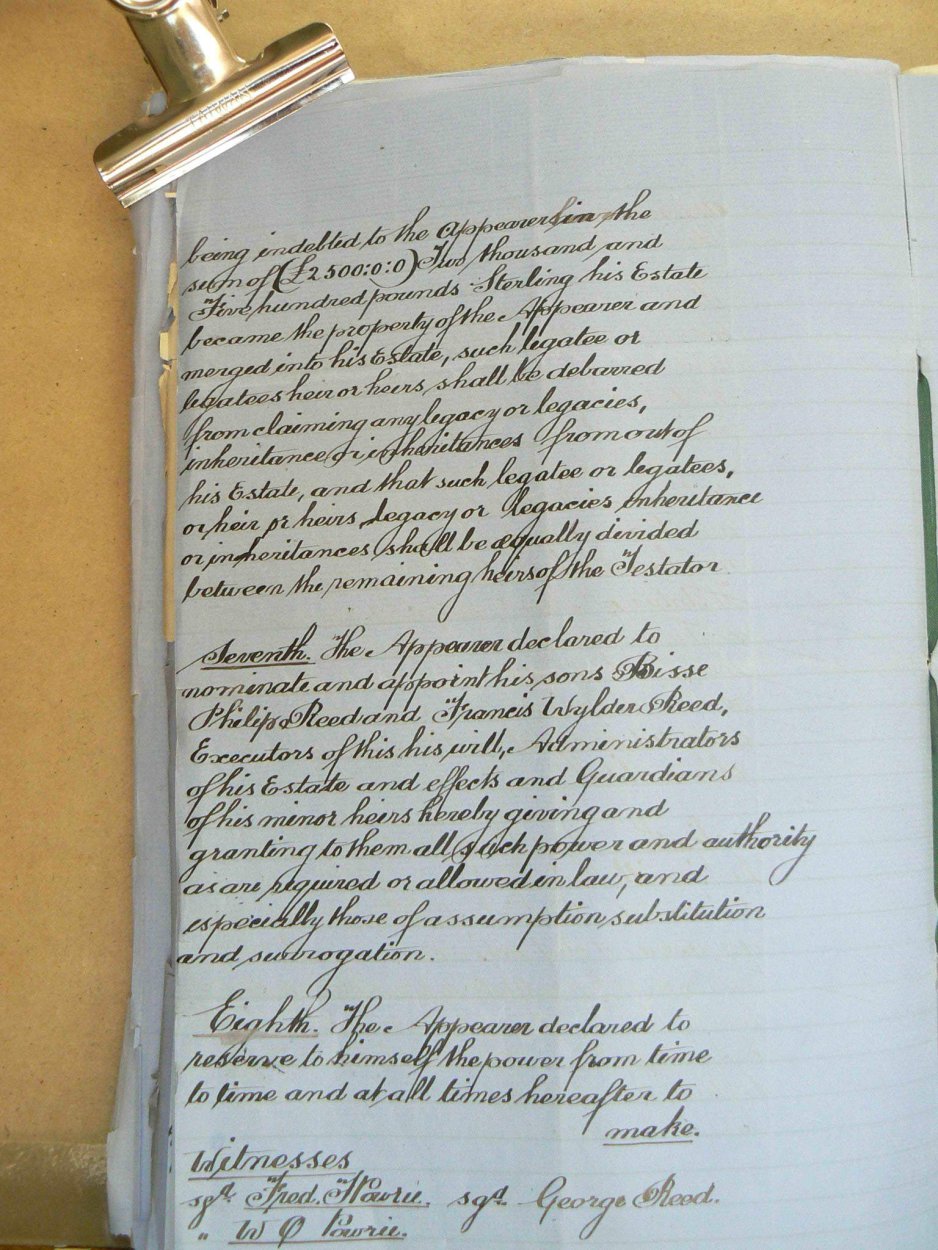 being indebted to the Appearer in the
sum of (£2500:0:0) Two thousand and
Five hundred pounds Sterling his Estate
became the property of the Appearer and
merged into his Estate, such legatee or
legatees heir or heirs shall be debarred
from claiming any legacy or legacies,
inheritance or inheritances from out of
his Estate, and that such legatee or legatees,
or heir or heirs, legacy or legacies inheritance
or inheritances shall be equally divided
between the remaining heirs of the Testator
Seventh. The Appearer declared to
nominate and appoint his sons Bisse
Philip Reed and Francis Wylder Reed,
Executors of this his will, Administrators
of his Estate and effects and Guardians
of his minor heirs hereby giving and
granting to them all such power and authority
as are required or allowed in law, and
especially those of assumption substitution
and surrogation.
Eighth. The Appearer declared to
reserve to himself the power from time
to time and at all times hereafter to
make.
Witnesses
sgd. Fred. sgd. George Reed.
" W O Powrie.